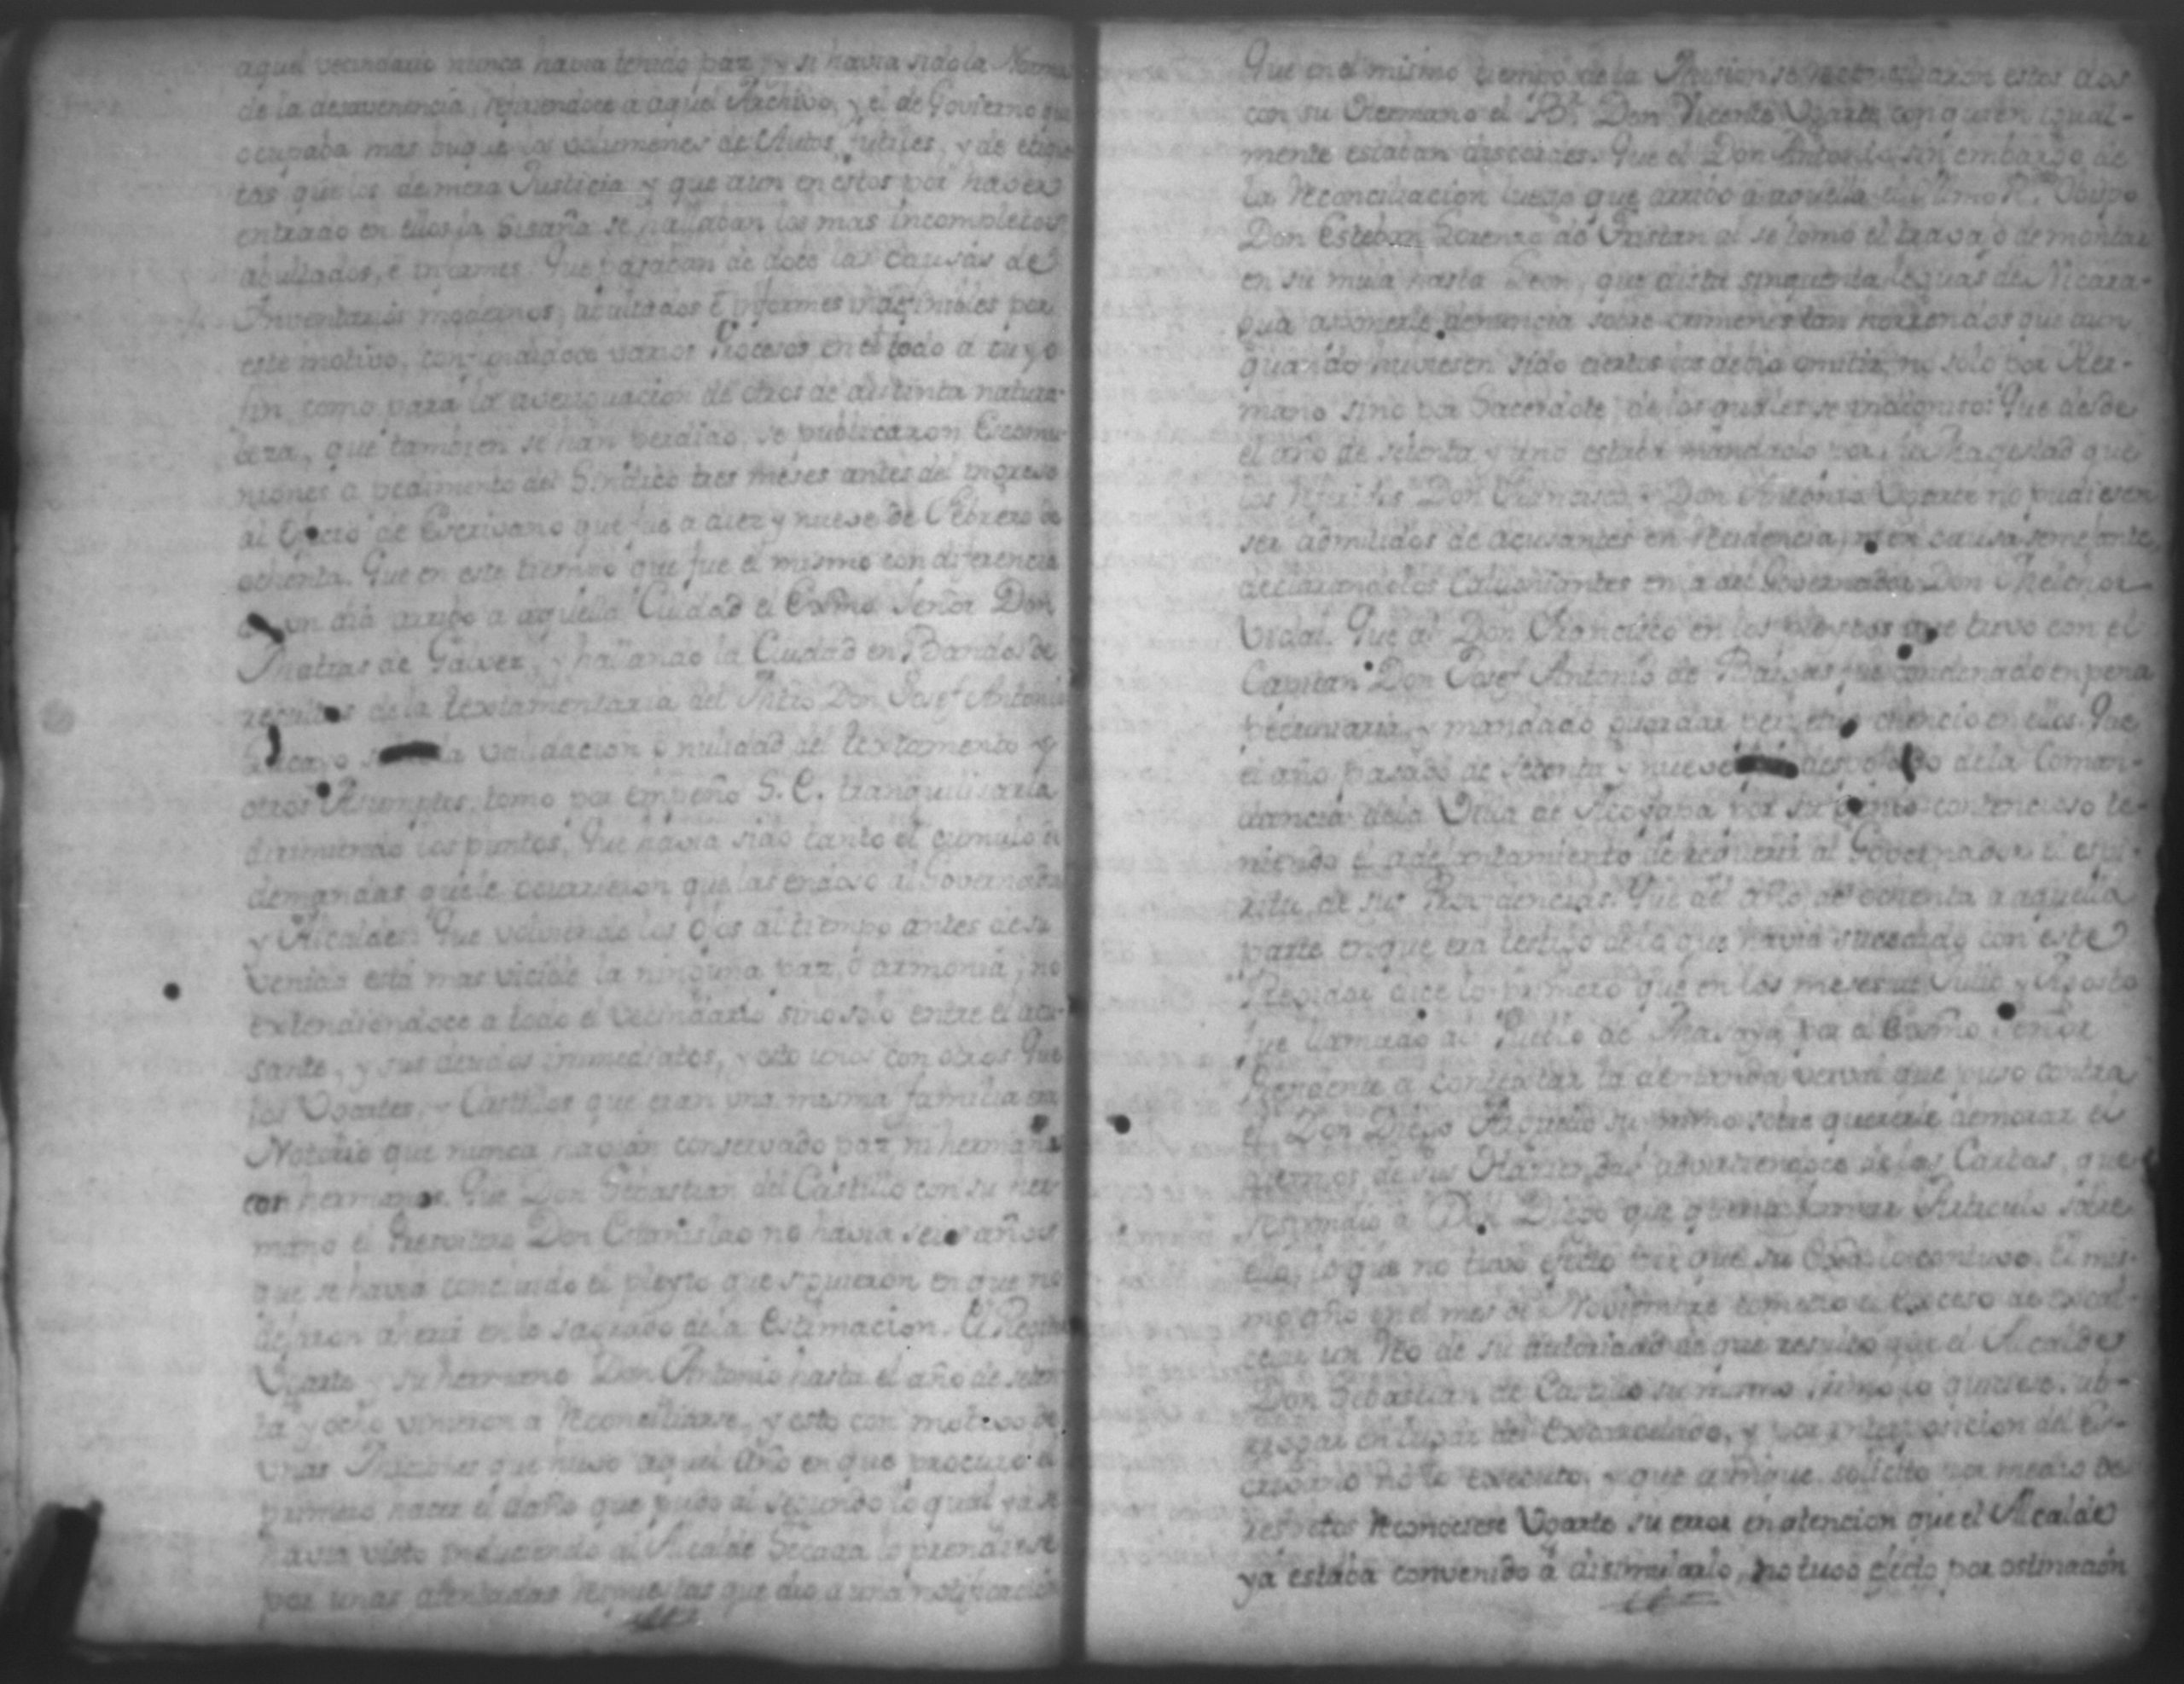 aquel vecindario nunca havia tenido paz y si havia sido la Norma
de la desavenencia, refiriendoce a aquel Archivo, y el de Govierno que
ocupaba mas buque los volumenes de Autos futiles, y de etique
tas que los de mera Justicia y que aun en estos por haver
entrado en ellos la Sisaña se hallaban los mas incompletos
abultados, e informes. Que pasaban de doce las causas de
Inventarios modernos, abultados é informes indefinibles por
este motivo, varios Procesos en el todo a cuyo
fin como para la averiguacion de otros de distinta natura-
leza, que tambien se han perdido, se publicaron Excomu-
niones a pedimento del Sindico tres meses antes del ingreso
al Oficio de Escrivano que fue a diez y nueve de Febrero de
ochenta. Que en este tiempo que fue el mismo con diferencia
de un dia arribo a aquella Ciudad el Exmo. Señor Don
Matias de Galvez, y hallando la Ciudad en Bandos de
resultas de la textamentaria del Pbro Don Josef Antonio
la validacion o nulidad del textamento y
otros Asumptos, tomo por empeño S. E. tranquilisarla
dirimiendo los puntos. Que havia sido tanto el cumulo de
demandas que le ocurrieron que las endoso al Governador
y Alcaldes. Que volviendo los ojos al tiempo antes de su
venida está mas vicible la ninguna paz, o armonia, no
extendiendoce a todo el vecindario sino solo entre el acu-
sante, y sus deudos immediatos, y esto unos con otros. Que
los Ugartes, y Castillos que eran una misma familia era
Notorio que nunca havian conservado paz, ni hermanos
con hermanos. Que Don Sebastian del Castillo con su her-
mano el Presvitero Don Estanislao no havia seis años
que se havia concluido el pleyto que siguieron en que no
dejaron aherir en lo sagrado de la Estimacion. El Regidor
Ugarte y su hermano Don Antonio hasta el año de seten-
ta y ocho vinieron a reconciliarse, y esto con motivo de
unas Prisiones que huvo aquel año en que procuro el
primero hacer el daño que pudo al segundo lo qual ya se
havia visto induciendo al Alcalde Secada lo prendiese
por unas atentadas respuestas que dio a una notificacion
Que en el mismo tiempo de la Prision se reconciliaron estos dos
con su Hermano el Br. Don Vicente Ugarte con quien igual-
mente estaban discordes. Que el Don Antonio sin embargo de
la reconciliacion luego que arribo a aquella el Illmo Rmo Obispo
Don Esteban Lorenzo de Tristan el se tomo el travajo de montar
en su mula hasta Leon, que dista sinquenta leguas de Nicara-
gua a ponerle denuncia sobre crimenes tan horrendos que aun
quando huviesen sido ciertos los debio omitir, no solo por Her-
mano sino por Sacerdote, de los quales se indemnisó: Que desde
el año de setenta y uno estaba mandado por su Magestad que
los Regidores Don Francisco y Don Antonio Ugarte no pudiesen
ser admitidos de acusantes en Recidencia, ni en causa semejante,
declarandolos Calumniantes en la del Governador Don Melchor
Vidal. Que al Don Francisco en los pleytos que tuvo con el
Capitan Don Josef Antonio de Bargas fue condenado en pena
pecuniaria, y mandado guardar perpetuo silencio en ellos. Que
el año pasado de setenta y nueve de la Coman-
dancia de la Villa de Acoyapa por su genio contencioso te-
niendo el adelantamiento de requerir al Governador el espi-
ritu de sus Providencias. Que del año de ochenta a aquella
parte en que era testigo de lo que havia sucedido con este
Regidor dice lo primero que en los meses de Julio y Agosto
fue llamado al Pueblo de Masaya por el Exmo Señor
Precidente a contextar la demanda verval que puso contra
el Don Diego Arguello su primo sobre quererle demorar el
de sus Haziendas advirtiendoce de las Cartas, que
respondio a Don Diego que queria formar Articulo sobre
ello, lo que no tuvo efecto por que su Exa lo contuvo. El mis-
mo año en el mes de Noviembre cometio el exceso de excar-
celar un Reo de su autoridad de que resulto que el Alcalde
Don Sebastian de Castillo su mismo primo lo quisiese ab-
rrogar en lugar del Excarcelado, y por interposicion del Es-
crivano no lo executo, y que aunque solicito por medio de
respetos reconociese Ugarte su error en atencion que el Alcalde
ya estaba convenido á disimularlo, no tuvo efecto por ostinacion